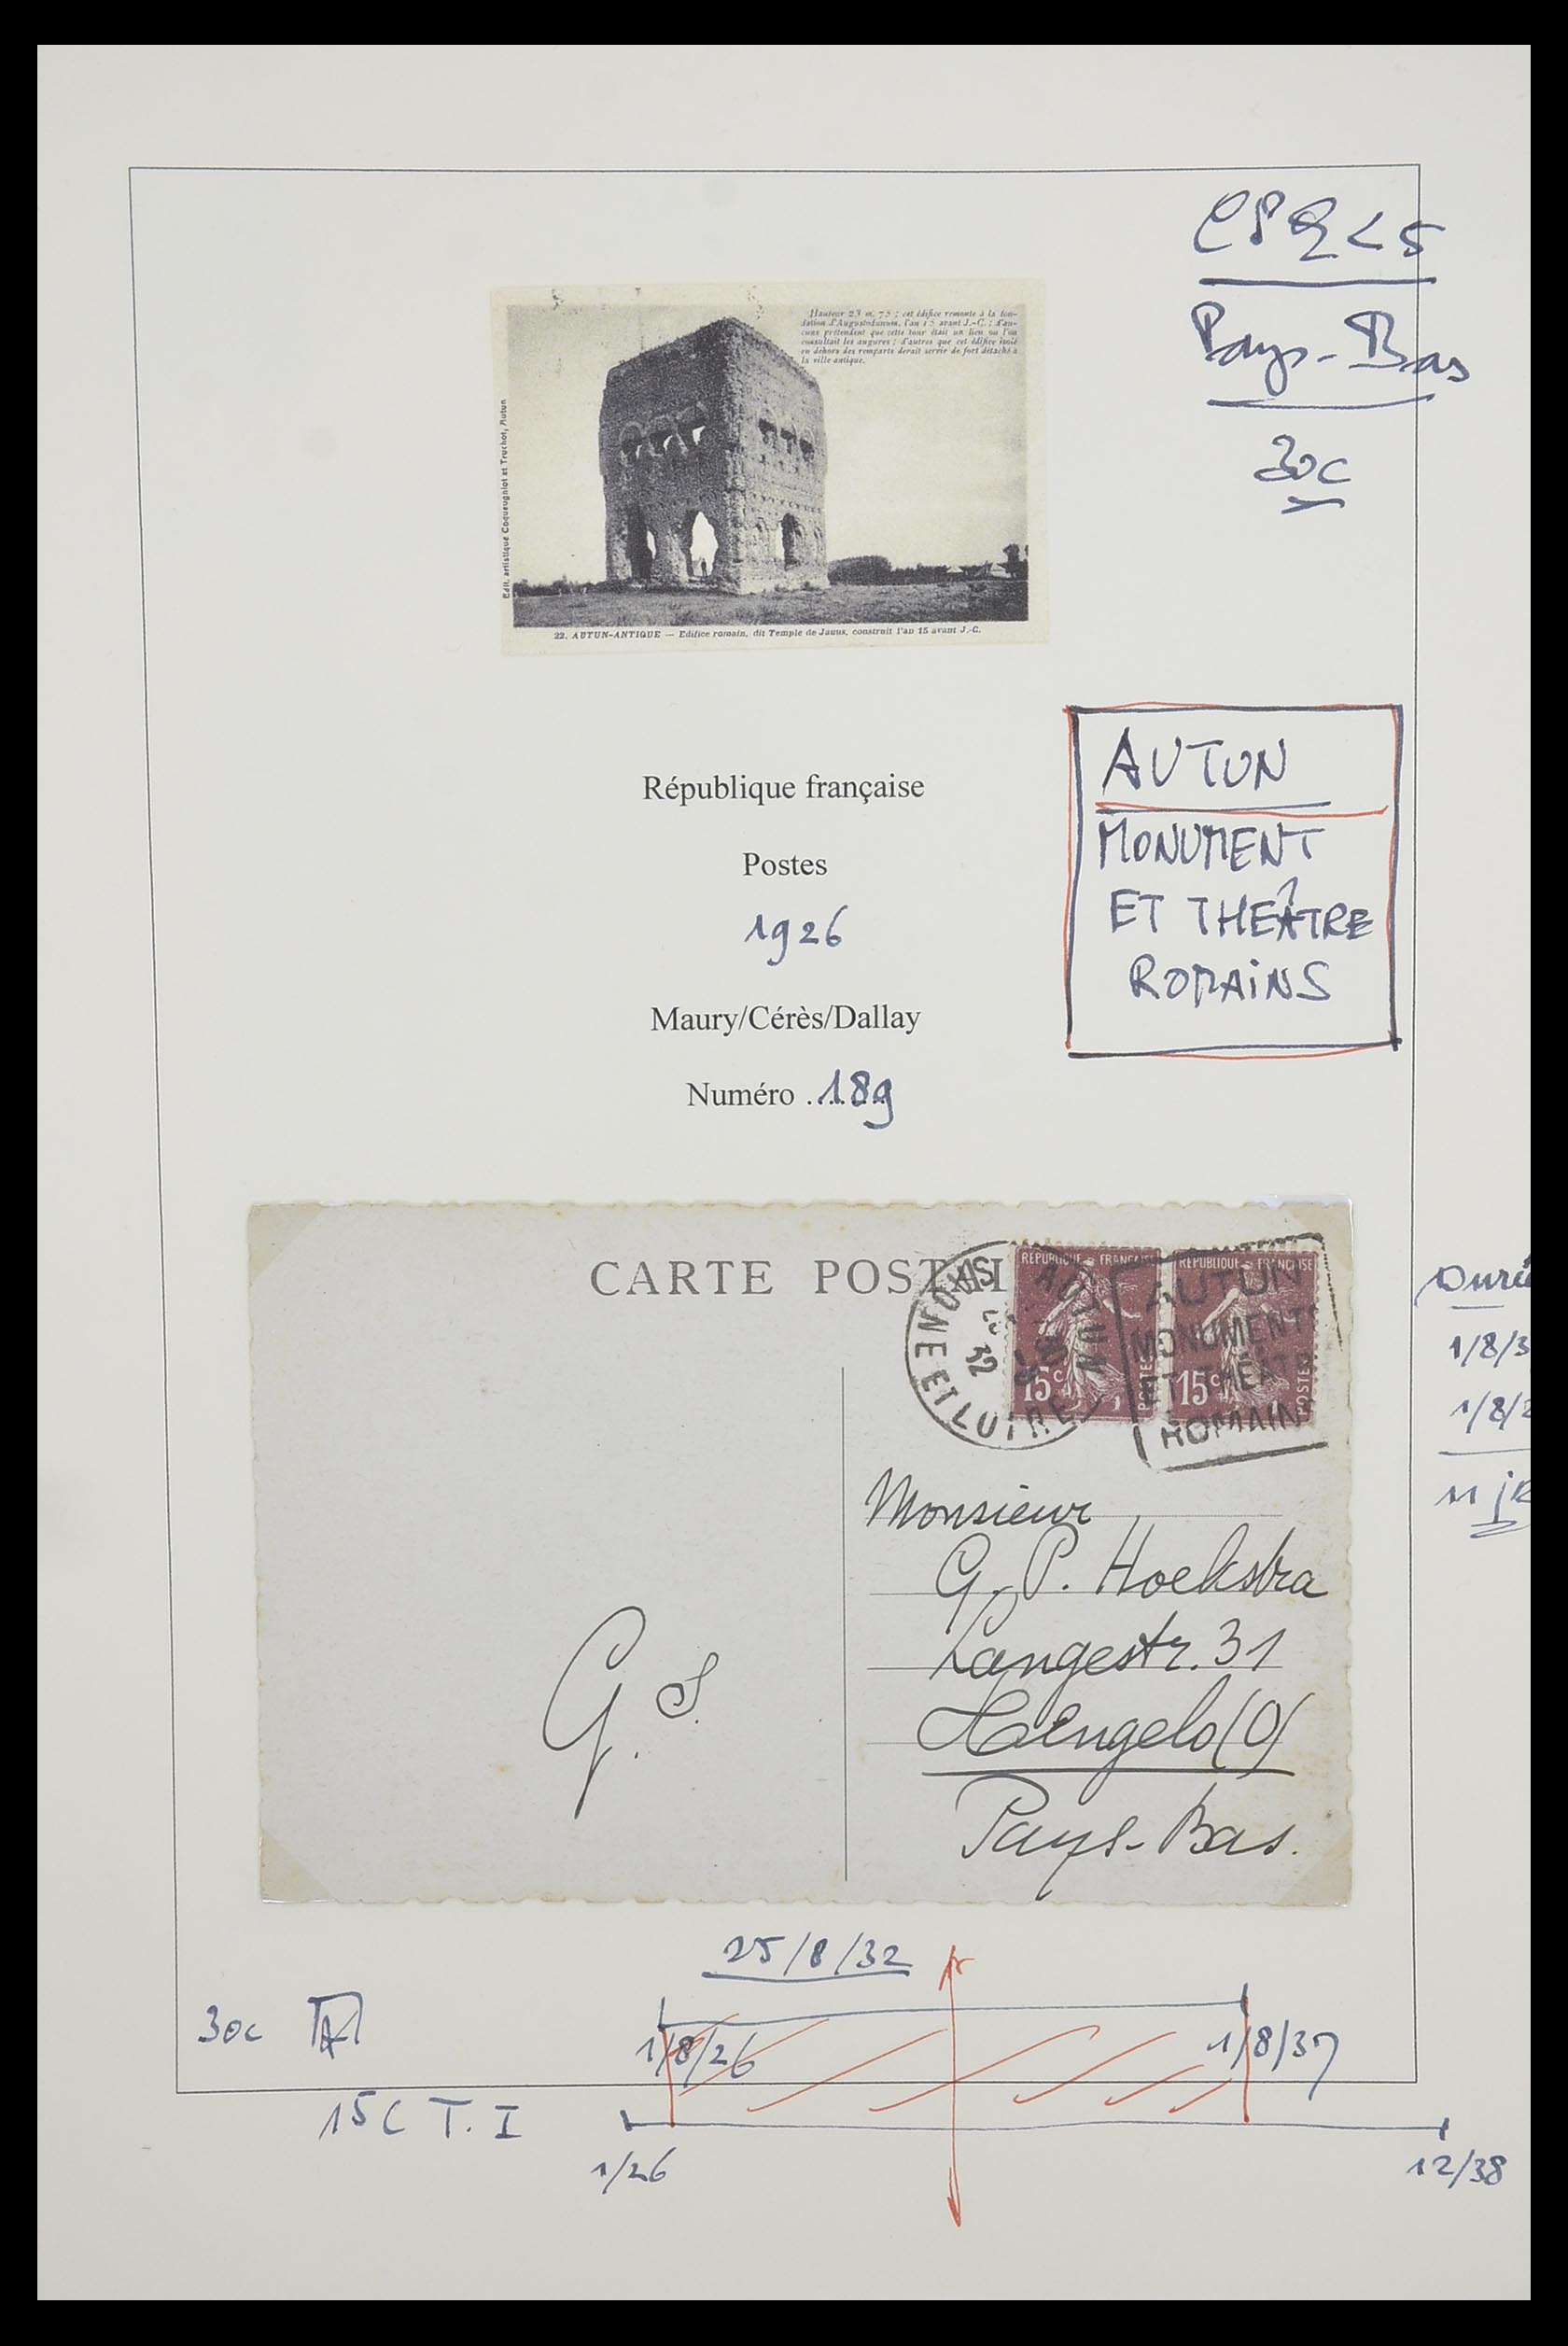 CPR < 5
Pays-Bas
30c
Hauteur 23 m. 75 ; cet édifice remonte à la fon-
dation d'Augustodunum, l'an 15 avant J.-C. ; d'au-
cuns prétendent que cette tour était un lieu où l'on
consultait les augures ; d'autres que cet édifice isolé
en dehors des remparts devait servir de fort détaché à
la ville antique.
Edit. artistique Coqueugniot et Truchot, Autun
22. AUTUN-ANTIQUE — Edifice romain, dit Temple de Janus, construit l'an 15 avant J.-C.
République française
Postes
1926
Maury/Cérès/Dallay
Numéro ..189
AUTUN
MONUMENT
ET THEÂTRE
ROMAINS
CARTE POSTAL
AUTUN
SAONE ET LOIRE
32
RÉPUBLIQUE FRANÇAISE
15c
POSTES
RÉPUBLIQUE FRANÇAISE
15c
POSTES
AUTUN
MONUMENTS
ET THÉÂT
ROMAIN
Monsieur
G. P. Hoekstra
Langestr. 31
Hengelo (O)
Pays-Bas.
G. S.
Duré
1/8/3
1/8/2
11
25/8/32
30c
1/8/26
1/8/37
15c T. I
1/26
12/38